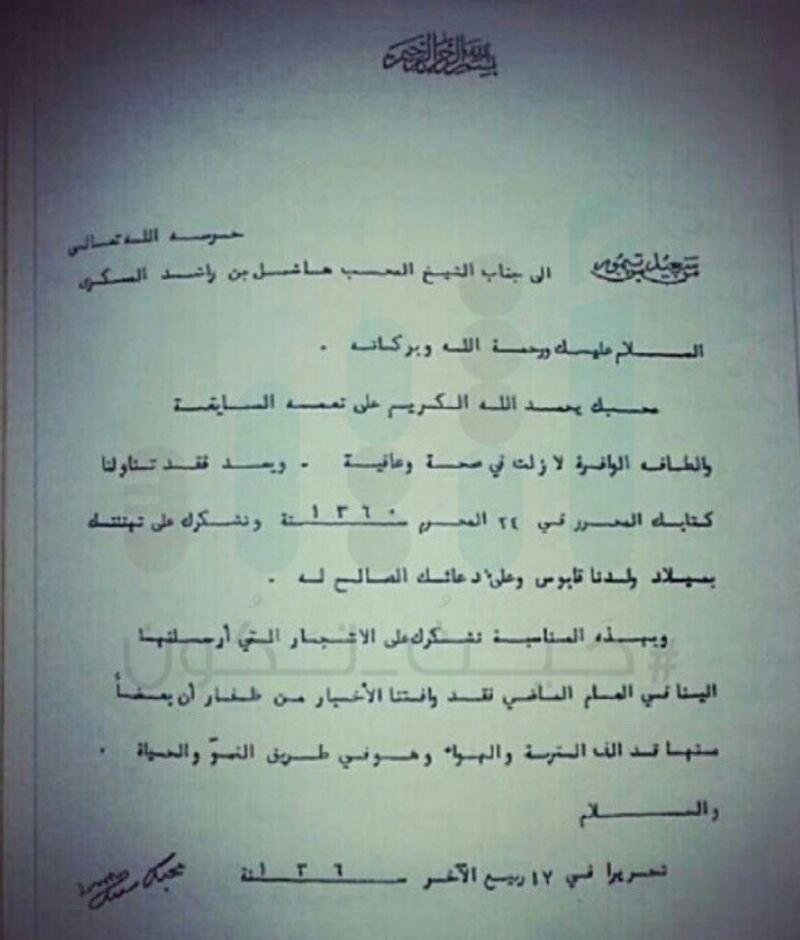 بسم الله الرحمن الرحيم
حرسه الله تعالى
من سعيد بن تيمور الى جناب الشيخ المحب هاشل بن راشد السكري
السلام عليك ورحمة الله وبركاته .
محبك يحمد الله الكريم على نعمه السابغة
والطافه الوافرة لا زلت في صحة وعافية . وبعد فقد تناولنا
كتابك المحرر في ٢٤ المحرم سنة ١٣٦٠ ونشكرك على تهنئتك
بميلاد ولدنا قابوس وعلى دعائك الصالح له .
وبهذه المناسبة نشكرك على الاشجار التي أرسلتها
الينا في العام الماضي فقد وافتنا الأخبار من ظفار أن بعضاً
منها قد الف التربة والهواء وهو في طريق النموّ والحياة .
والسلام
تحريرا في ١٢ ربيع الآخر سنة ١٣٦٠
محبك سعيد
#حيث_تكون